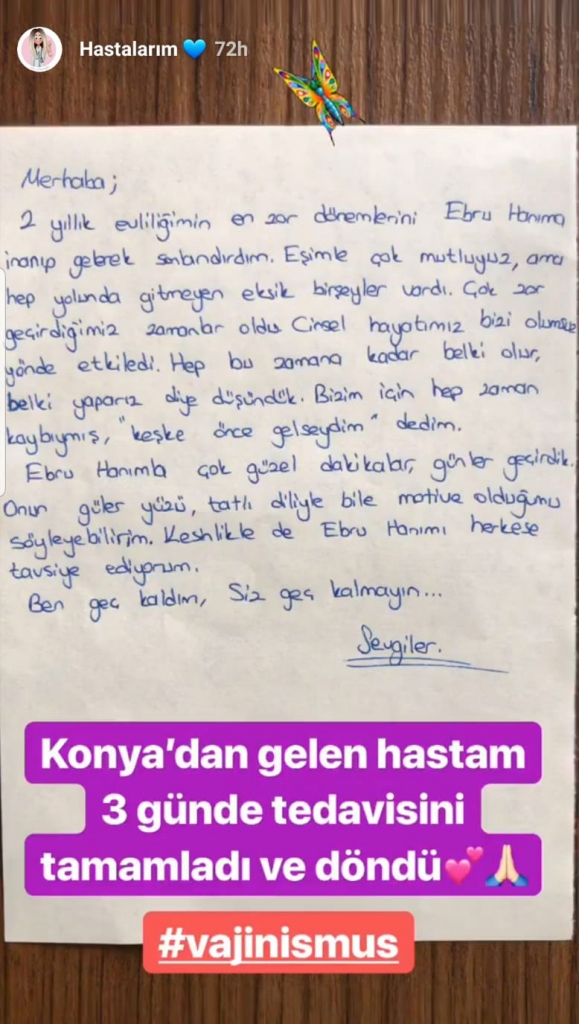 Hastalarım 💙 72h
Merhaba;
2 yıllık evliliğimin en zor dönemlerini Ebru Hanıma
inanıp gelerek sonlandırdım. Eşimle çok mutluyuz, ama
hep yolunda gitmeyen eksik birşeyler vardı. Çok zor
geçirdiğimiz zamanlar oldu Cinsel hayatımız bizi olumsuz
yönde etkiledi. Hep bu zamana kadar belki olur,
belki yaparız diye düşündük. Bizim için hep zaman
kaybıymış, "keşke önce gelseydim" dedim.
Ebru Hanımla çok güzel dakikalar, günler geçirdik.
Onun güler yüzü, tatlı diliyle bile motive olduğumu
söyleyebilirim. Kesinlikle de Ebru Hanımı herkese
tavsiye ediyorum.
Ben geç kaldım, Siz geç kalmayın...
Sevgiler.
Konya’dan gelen hastam
3 günde tedavisini
tamamladı ve döndü💕🙏🏻
#vajinismus